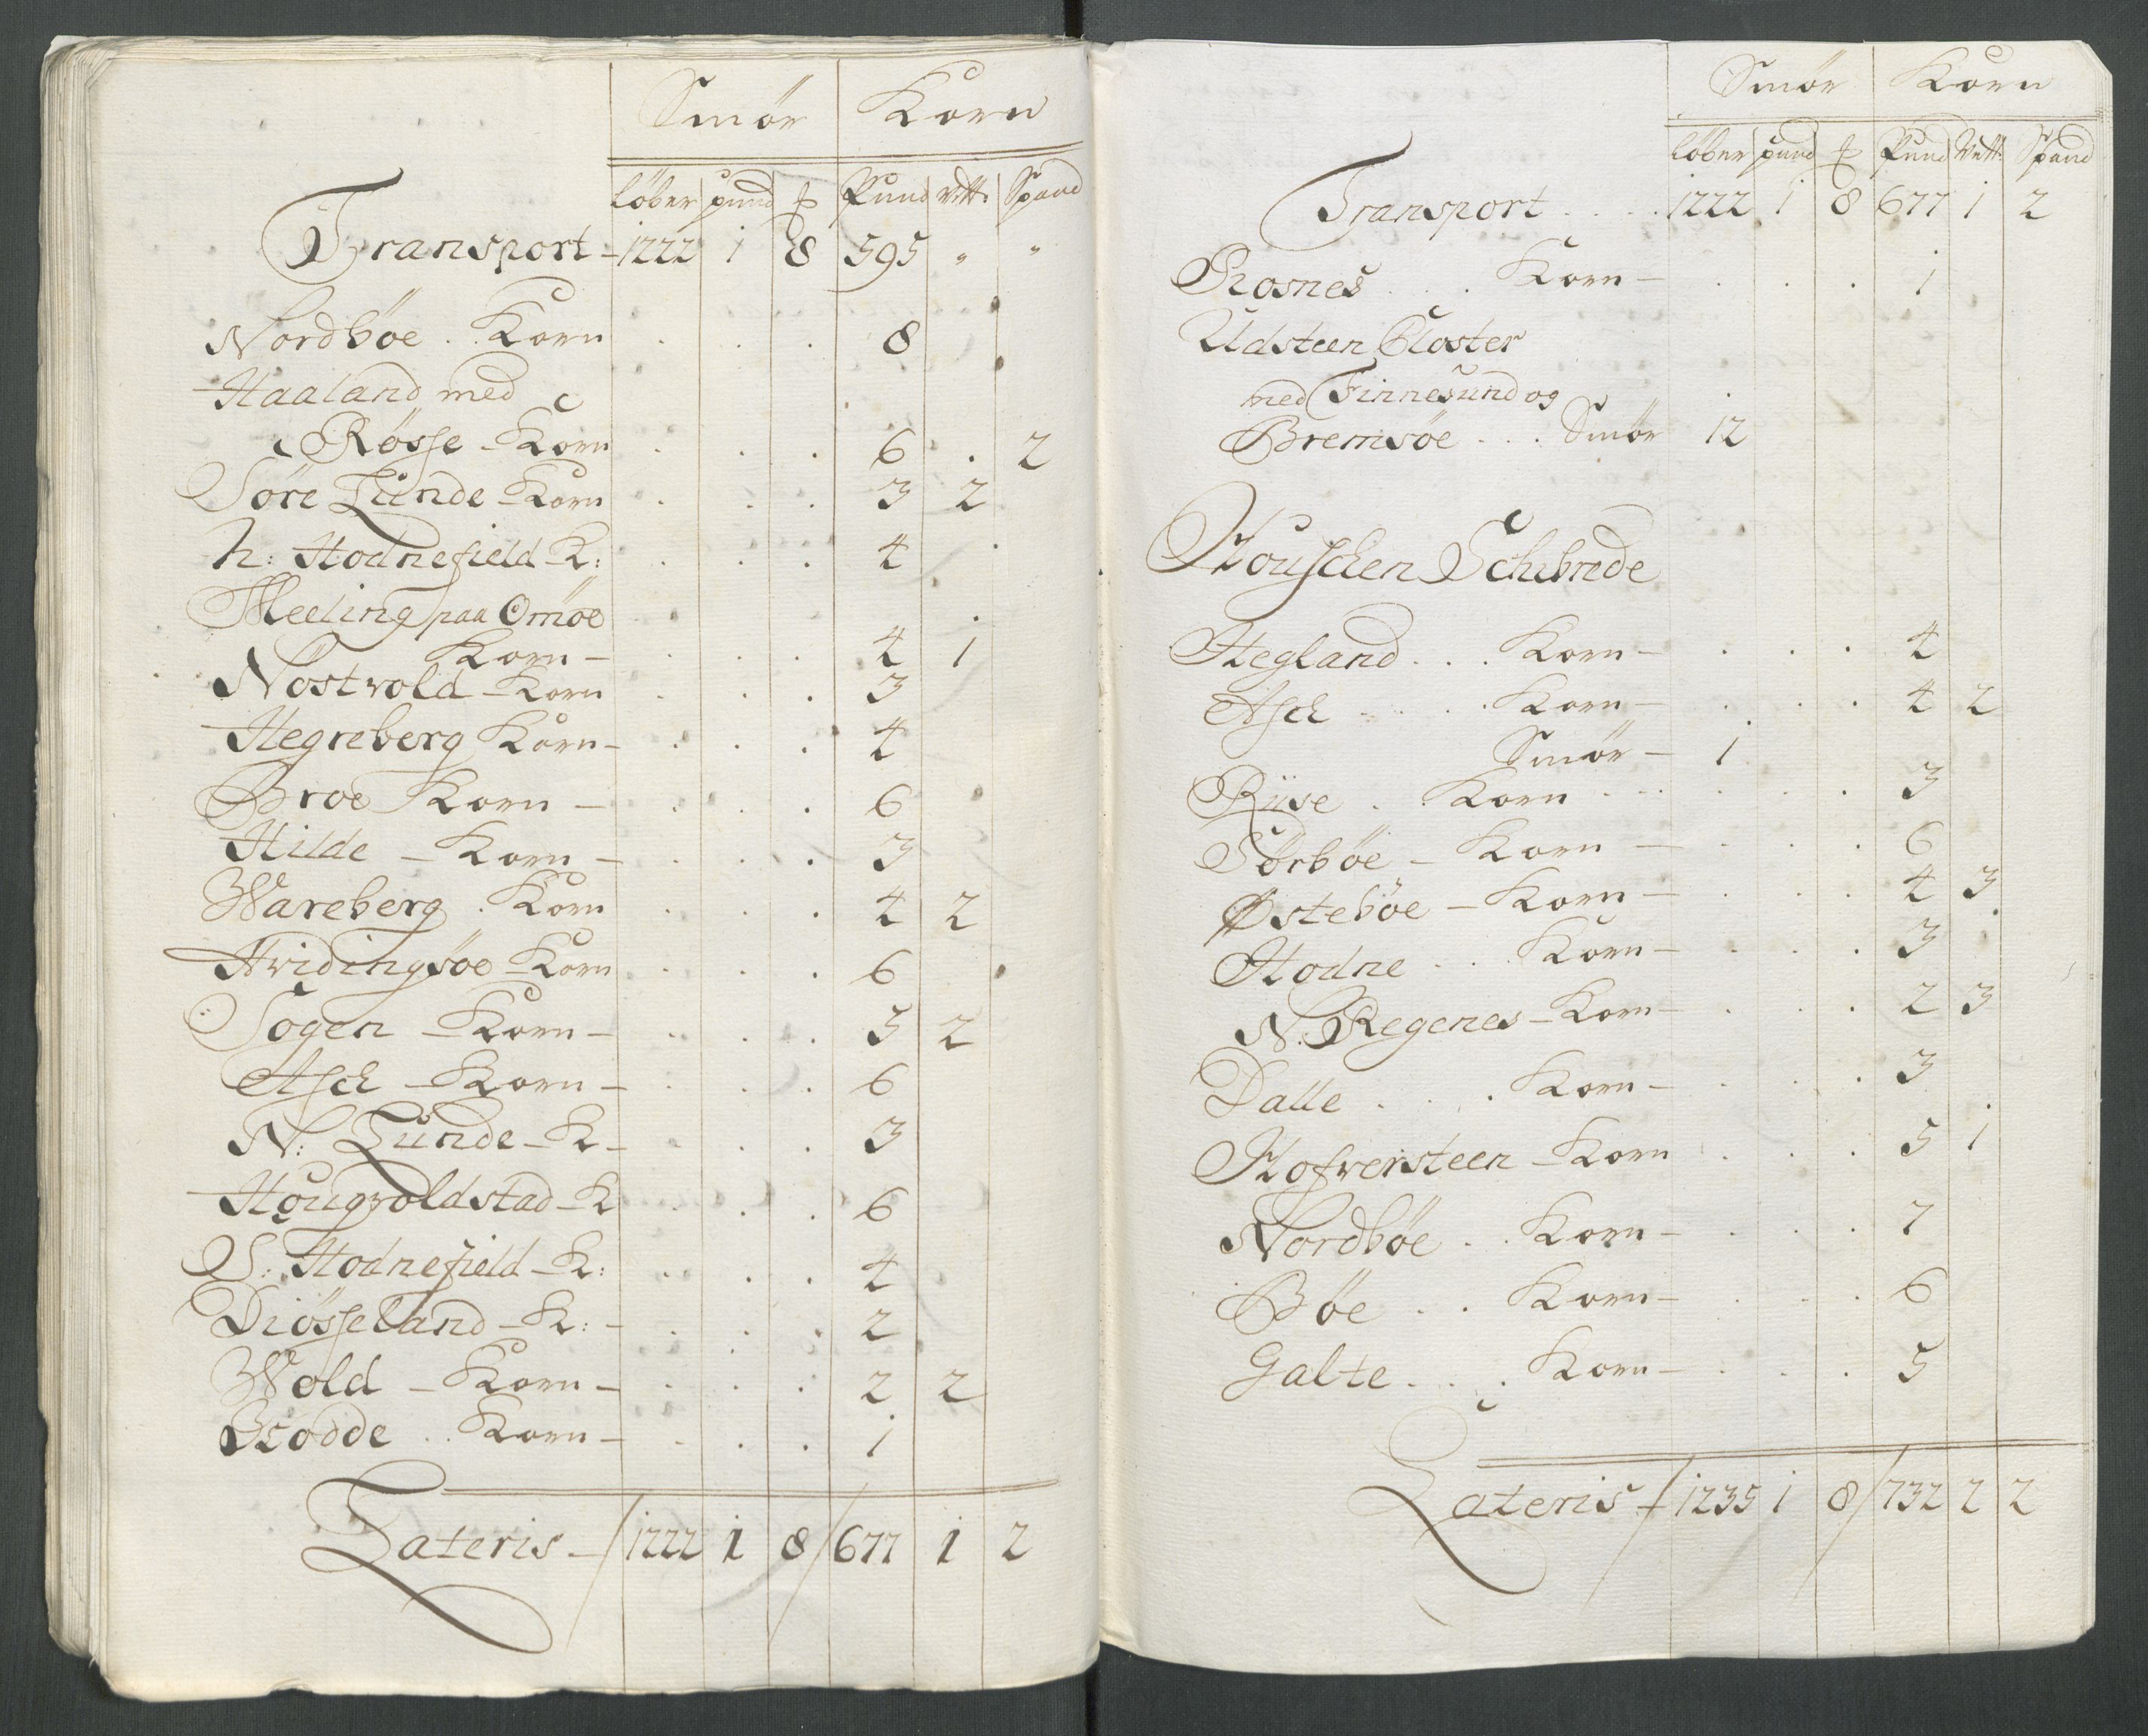 Smör Korn
löber pund ℔ Pund Vett: Spand
Transport - 1222 1 8 595 " "
Nordböe . Korn . . . 8
Haaland med
Rösse - Korn . . . 6 . 2
Söre Lunde - Korn . . . 3 2
N: Hodnefield - K: . . . 4
Meeling paa Omöe
Korn - . . . 4 1
Nöstvold - Korn . . . 3
Hegreberg Korn - . . . 4
Broe Korn - . . . 6
Hilde - Korn - . . . 3
Wareberg . Korn . . . 4 2
Hvidingsöe - Korn . . . 6
Sogen - Korn - . . . 3 2
Asch - Korn - . . . 6
N: Lunde - K - . . . 3
Hougvoldstad - K . . . 6
S: Hodnefield - K: . . . 4
Diösseland - K: - . . . 2
Wold - Korn - . . . 2 2
Brodde . . Korn - . . . 1
Lateris - 1222 1 8 677 1 2
Smör Korn
löber pund ℔ Pund Vett: Spand
Transport . . . . 1222 1 8 677 1 2
Rosnes . . . Korn - . . . 1
Udsteen Closter
med Finnesund og
Bremsöe . . . Smör 12
Houschen Schibrede
Hegland . . . Korn - . . . 4
Asch . . . . Korn - . . . 4 2
Smör - 1
Riise . . Korn . . . . . . 3
Sörböe - Korn - . . . 6
Østeböe - Korn - . . . 4 3
Hodne . . . Korn - . . . 3
N. Regenes - Korn - . . . 2 3
Dalle . . . Korn - . . . 3
Hofversteen - Korn . . . 5 1
Nordböe . . Korn - . . . 7
Böe . . Korn - . . . 6
Galte . . . Korn - . . . 5
Lateris - 1235 1 8 732 2 2